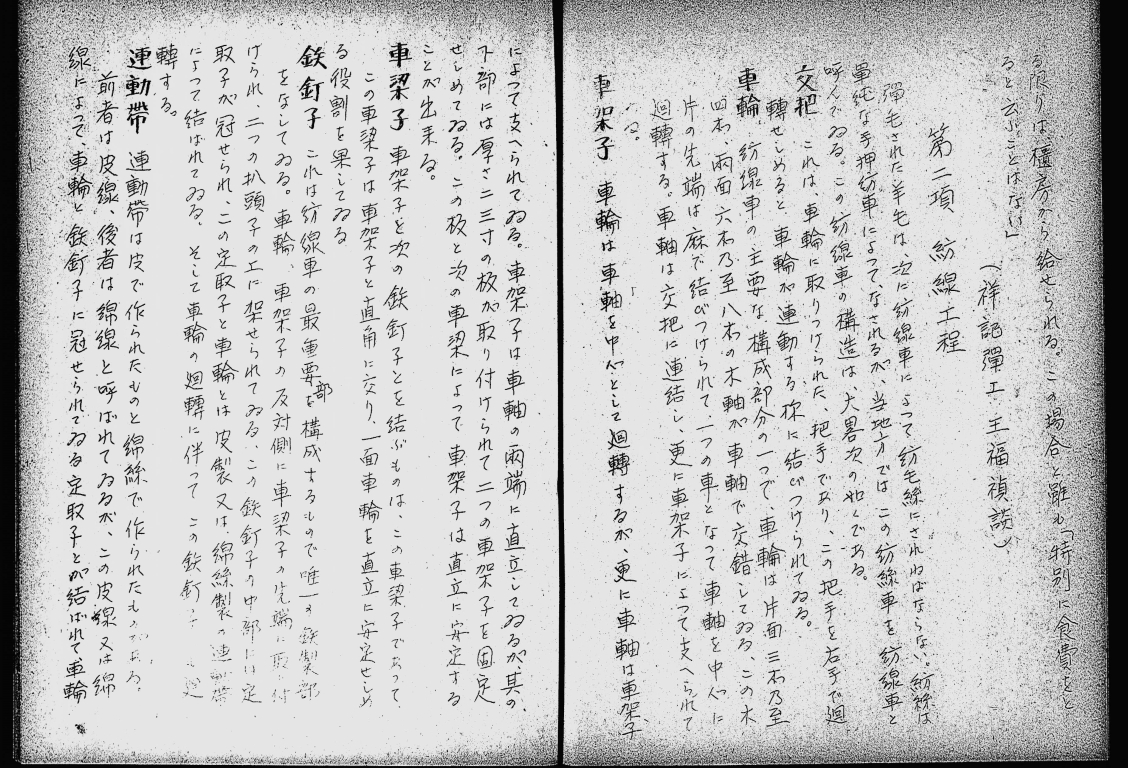 る限りは櫃房から給せられる。この場合と雖も「特別に食費を
ると云ふことはない」
（祥記彈工、王福禎談）
第二項　紡線工程
彈毛された羊毛は、次に紡線車によつて紡毛絲にされねばならない。紡絲は
單純な手押紡車によつてなされるが、当地方ではこの紡線車を紡線車と
呼んでゐる。この紡線車の構造は、大畧次の如くである。
交把　これは、車輪に取りつけられた、把手であり、この把手を右手で廻
轉せしめると車輪が連動する様に結びつけられてゐる。
車輪　紡線車の主要な構成部分の一つで、車輪は片面三本乃至
四本、兩面六本乃至八本の木軸が車軸で交錯してゐる。この木
片の先端は麻で結びつけられて、一つの車となつて車軸を中心に
廻轉する。車軸は交把に連結し、更に車架子によつて支へられて
ゐる。
車架子　車輪は車軸を中心として廻轉するが、更に車軸は車架子
によつて支へられてゐる。車架子は車軸の兩端に直立してゐるが、其の
下部には厚さ二三寸の板が取り付けられて二つの車架子を固定
せしめてゐる。この板と次の車梁によつて車架子は直立に安定する
ことが出来る。
車梁子　車架子を次の鉄釘子とを結ぶものは、この車梁子であつて
この車梁子は車架子と直角に交り、一面車輪を直立に安定せしめ
る役割を果してゐる
鉄釘子　これは紡線車の最重要部を構成するもので唯一の鉄製部
をなしてゐる。車輪、車架子の反対側に車梁子の先端に取り付
けられ、二つの扒頭子の上に架せられてゐる、この鉄釘子の中部には定
取子が冠せられ、この定取子と車輪とは皮製又は綿絲製の運動帶
によつて結ばれてゐる、そして車輪の廻轉に伴つてこの鉄釘子も廻
轉する。
運動帶　運動帶は皮で作られたものと綿絲で作られたものがある、
前者は皮線、後者は綿線と呼ばれてゐるが、この皮線又は綿
線によつて、車輪と鉄釘子に冠せられてゐる定取子とが結ばれて車輪